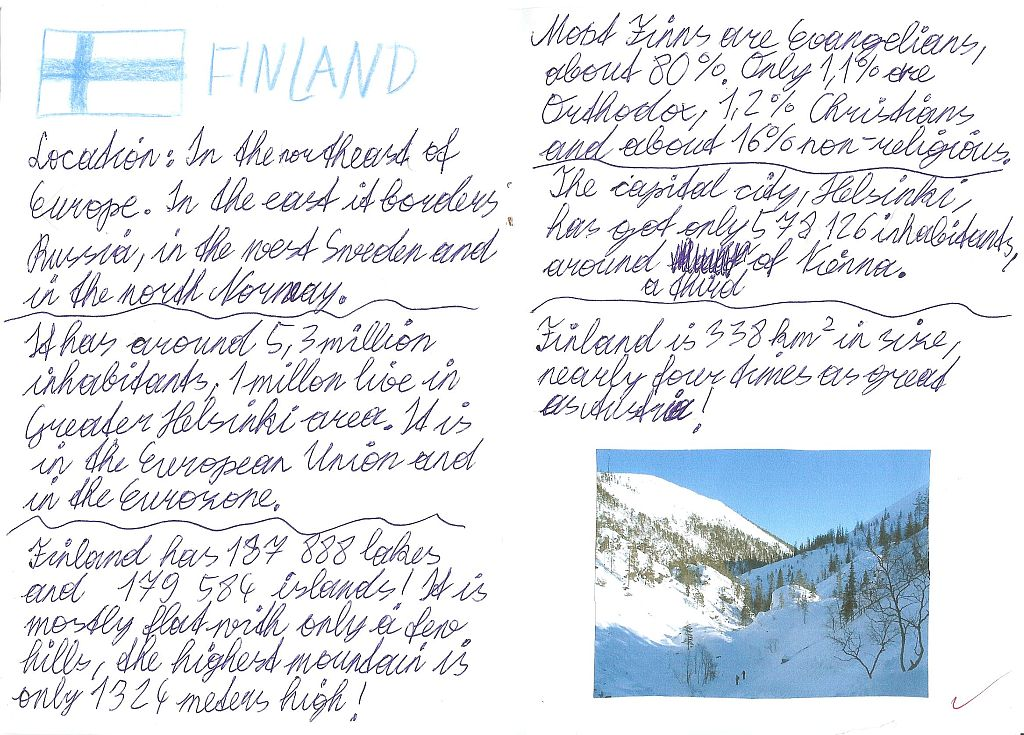 FINLAND
Location: In the northeast of
Europe. In the east it borders
Russia, in the west Sweden and
in the north Norway.
It has around 5,3 million
inhabitants, 1 millon live in
Greater Helsinki area. It is
in the European Union and
in the Eurozone.
Finland has 187 888 lakes
and 179 584 islands! It is
mostly flat with only a few
hills, the highest mountain is
only 1324 meters high!
Most Finns are Evangelians,
about 80%. Only 1,1% are
Orthodox, 1,2% Christians
and about 16% non-religious.
The capital city, Helsinki,
has got only 578 126 inhabitants,
around of Vienna.
a third
Finland is 338 km² in size,
nearly four times as great
as Austria!